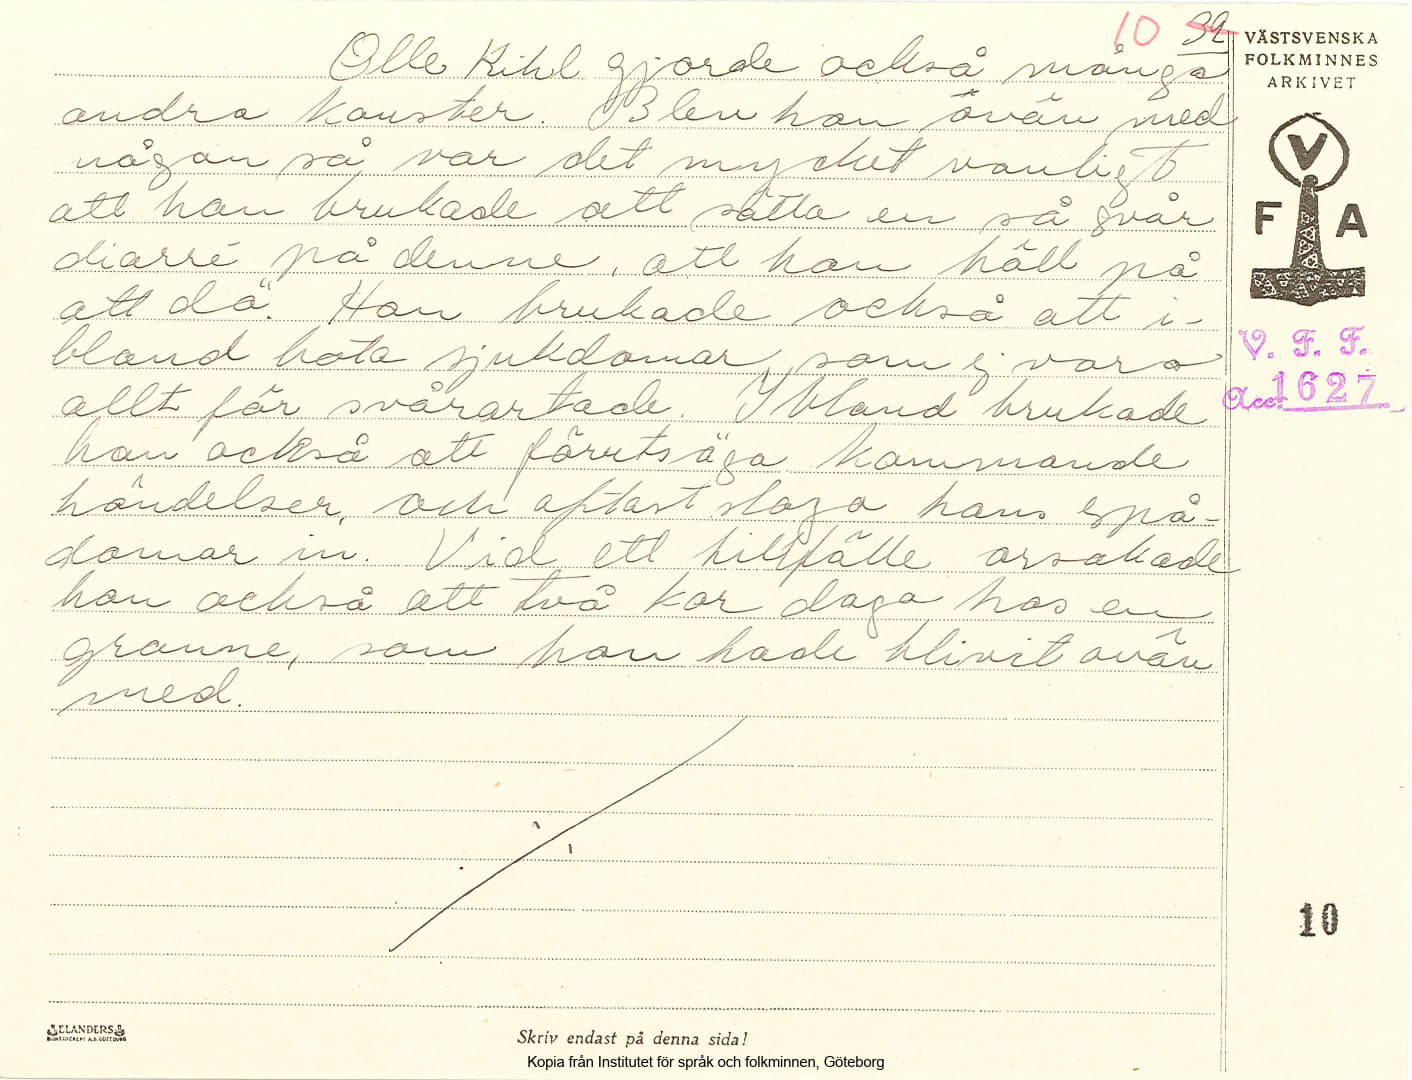 10 32
Olle Kihl gjorde också många
andra konster. Blev han ovän med
någon så var det mycket vanligt
att han brukade att sätta en så svår
diarré på denne, att han "höll på
att dö". Han brukade också att i-
bland bota sjukdomar, som ej voro
allt för svårartade. Ibland brukade
han också att förutsäga kommande
händelser, och oftast slogo hans spå-
domar in. Vid ett tillfälle orsakade
han också att två kor dogo hos en
granne, som han hade blivit ovän
med.
VÄSTSVENSKA
FOLKMINNES
ARKIVET
V
F A
V. F. F.
Acc. 1627
10
ELANDERS
BOKTRYCKERI A.B. GÖTEBORG
Skriv endast på denna sida!
Kopia från Institutet för språk och folkminnen, Göteborg